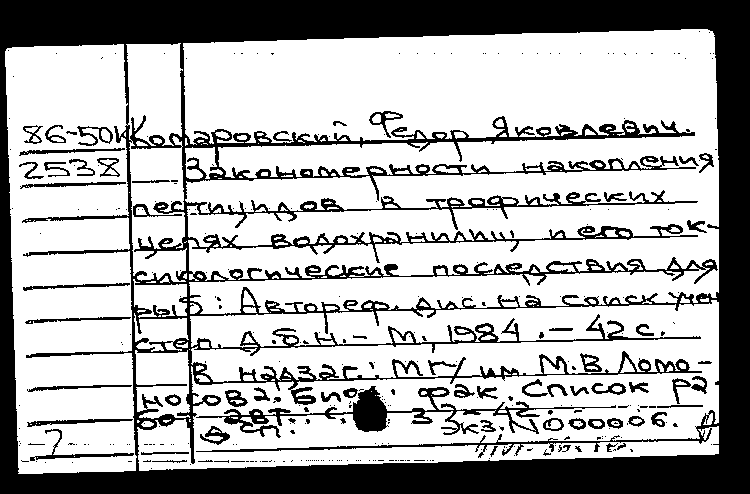 86-50к Комаровский, Федор Яковлевич.
2538 Закономерности накопления
пестицидов в трофических
цепях водохранилищ и его ток-
сикологические последствия для
рыб: Автореф. дис. на соиск учен
степ. д.б.н. - М., 1984. - 42 с.
В надзаг.: МГУ им. М.В. Ломо-
носова. Биол. фак. Список ра-
бот авт.: с. 33-42.
сп. Экз. N 000006.
-7